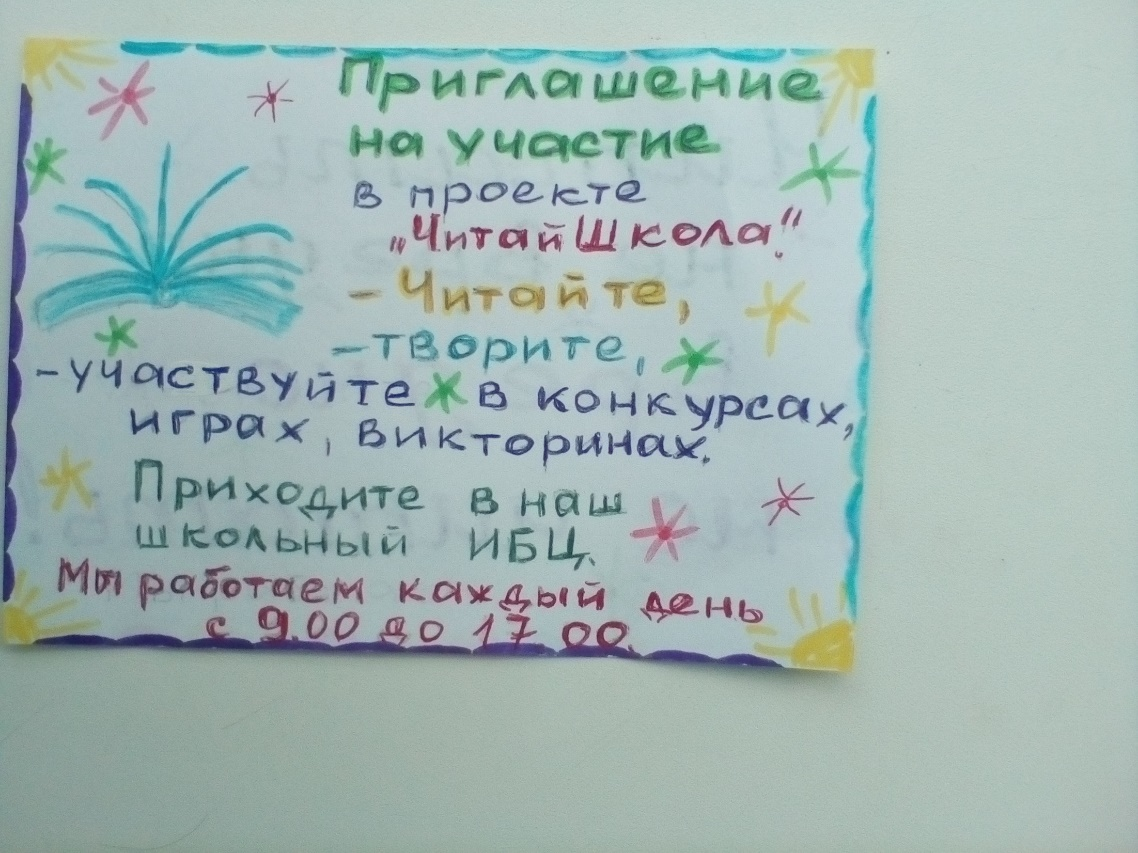 Приглашение
на участие
в проекте
„ЧитайШкола".
- Читайте,
- творите,
- участвуйте в конкурсах,
играх, викторинах.
Приходите в наш
школьный ИБЦ.
Мы работаем каждый день
с 9.00 до 17 00.